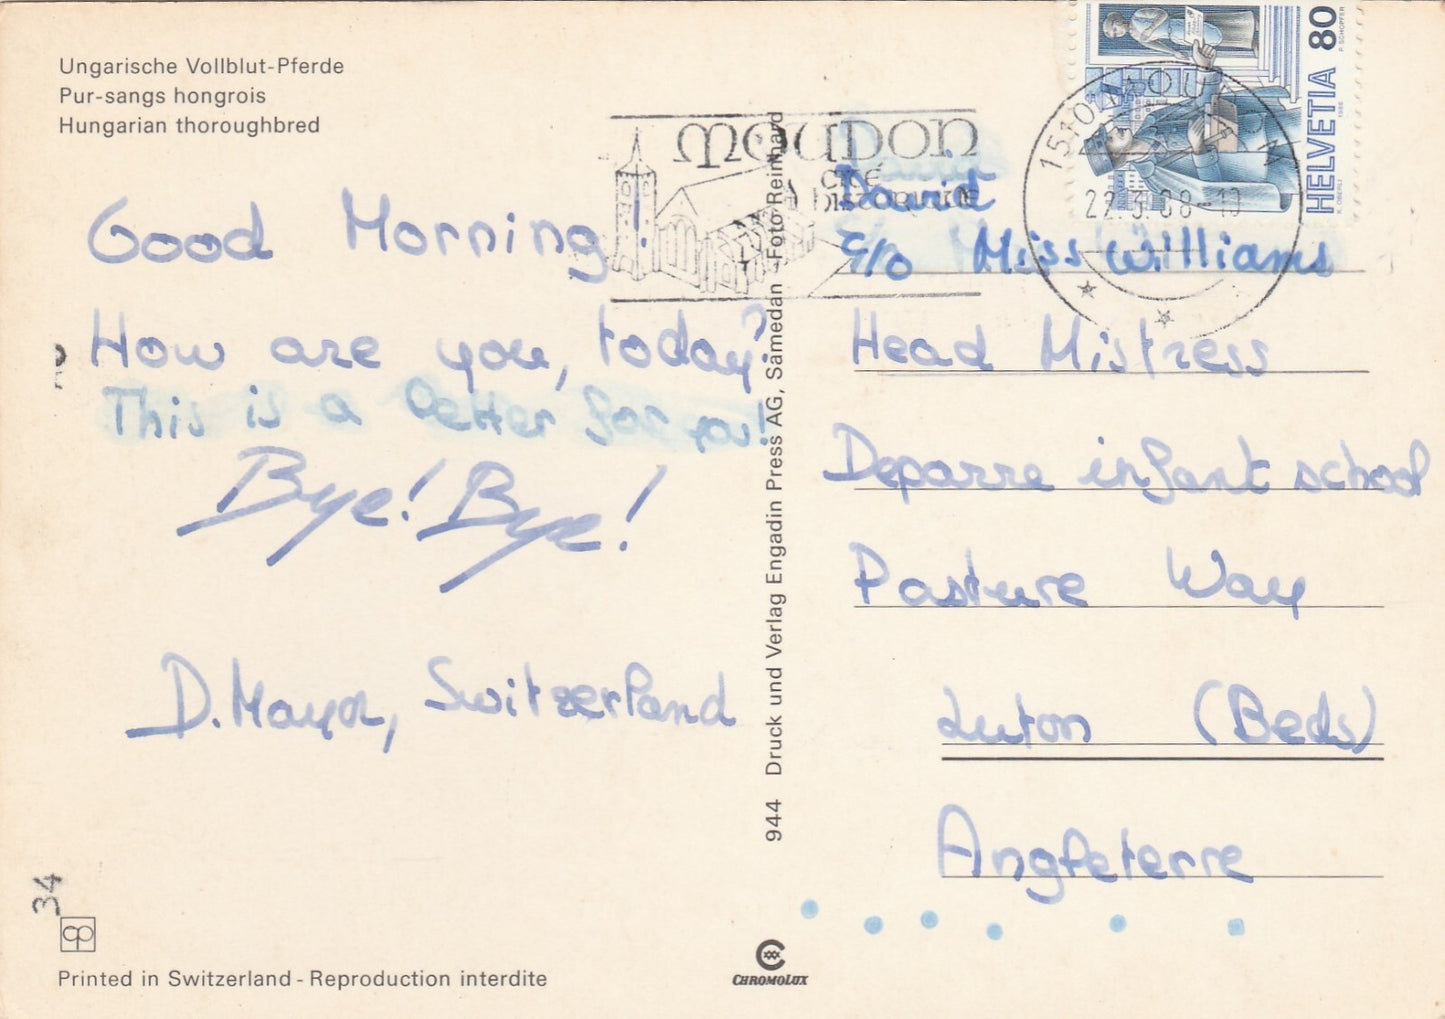 Ungarische Vollblut-Pferde
Pur-sangs hongrois
Hungarian thoroughbred
Good Morning
How are you, today?
This is a letter for you!
Bye! Bye!
D. Mayor, Switzerland
34
cp
Printed in Switzerland - Reproduction interdite
944 Druck und Verlag Engadin Press AG, Samedan - Foto Reinhard
CHROMOLUX
MOUDON
CITÉ
HISTORIQUE
1510 MOUDON
22.3.88-10
HELVETIA 80
P. SCHOPFER
K. OBERLI
1986
David
c/o Miss Williams
Head Mistress
Deparre infant school
Pasture Way
Luton (Beds)
Angleterre